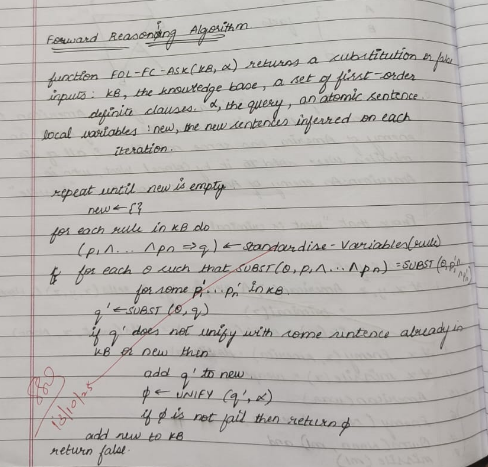 Forward Reasoning Algorithm
function FOL-FC-ASK(KB, α) returns a substitution or false
inputs: KB, the knowledge base, a set of first-order
definite clauses. α, the query, an atomic sentence
local variables: new, the new sentences inferred on each
iteration.
repeat until new is empty
new ← {}
for each rule in KB do
(p₁ ∧ ... ∧ pn ⇒ q) ← Standardise-Variables(rule)
for each θ such that SUBST(θ, p₁ ∧ ... ∧ pn) = SUBST(θ, p₁'∧...∧pn')
for some p₁'...pn' in KB
q' ← SUBST (θ, q)
if q' does not unify with some sentence already in
KB or new then
add q' to new
ϕ ← UNIFY (q', α)
if ϕ is not fail then return ϕ
add new to KB
return false.
10/10/25